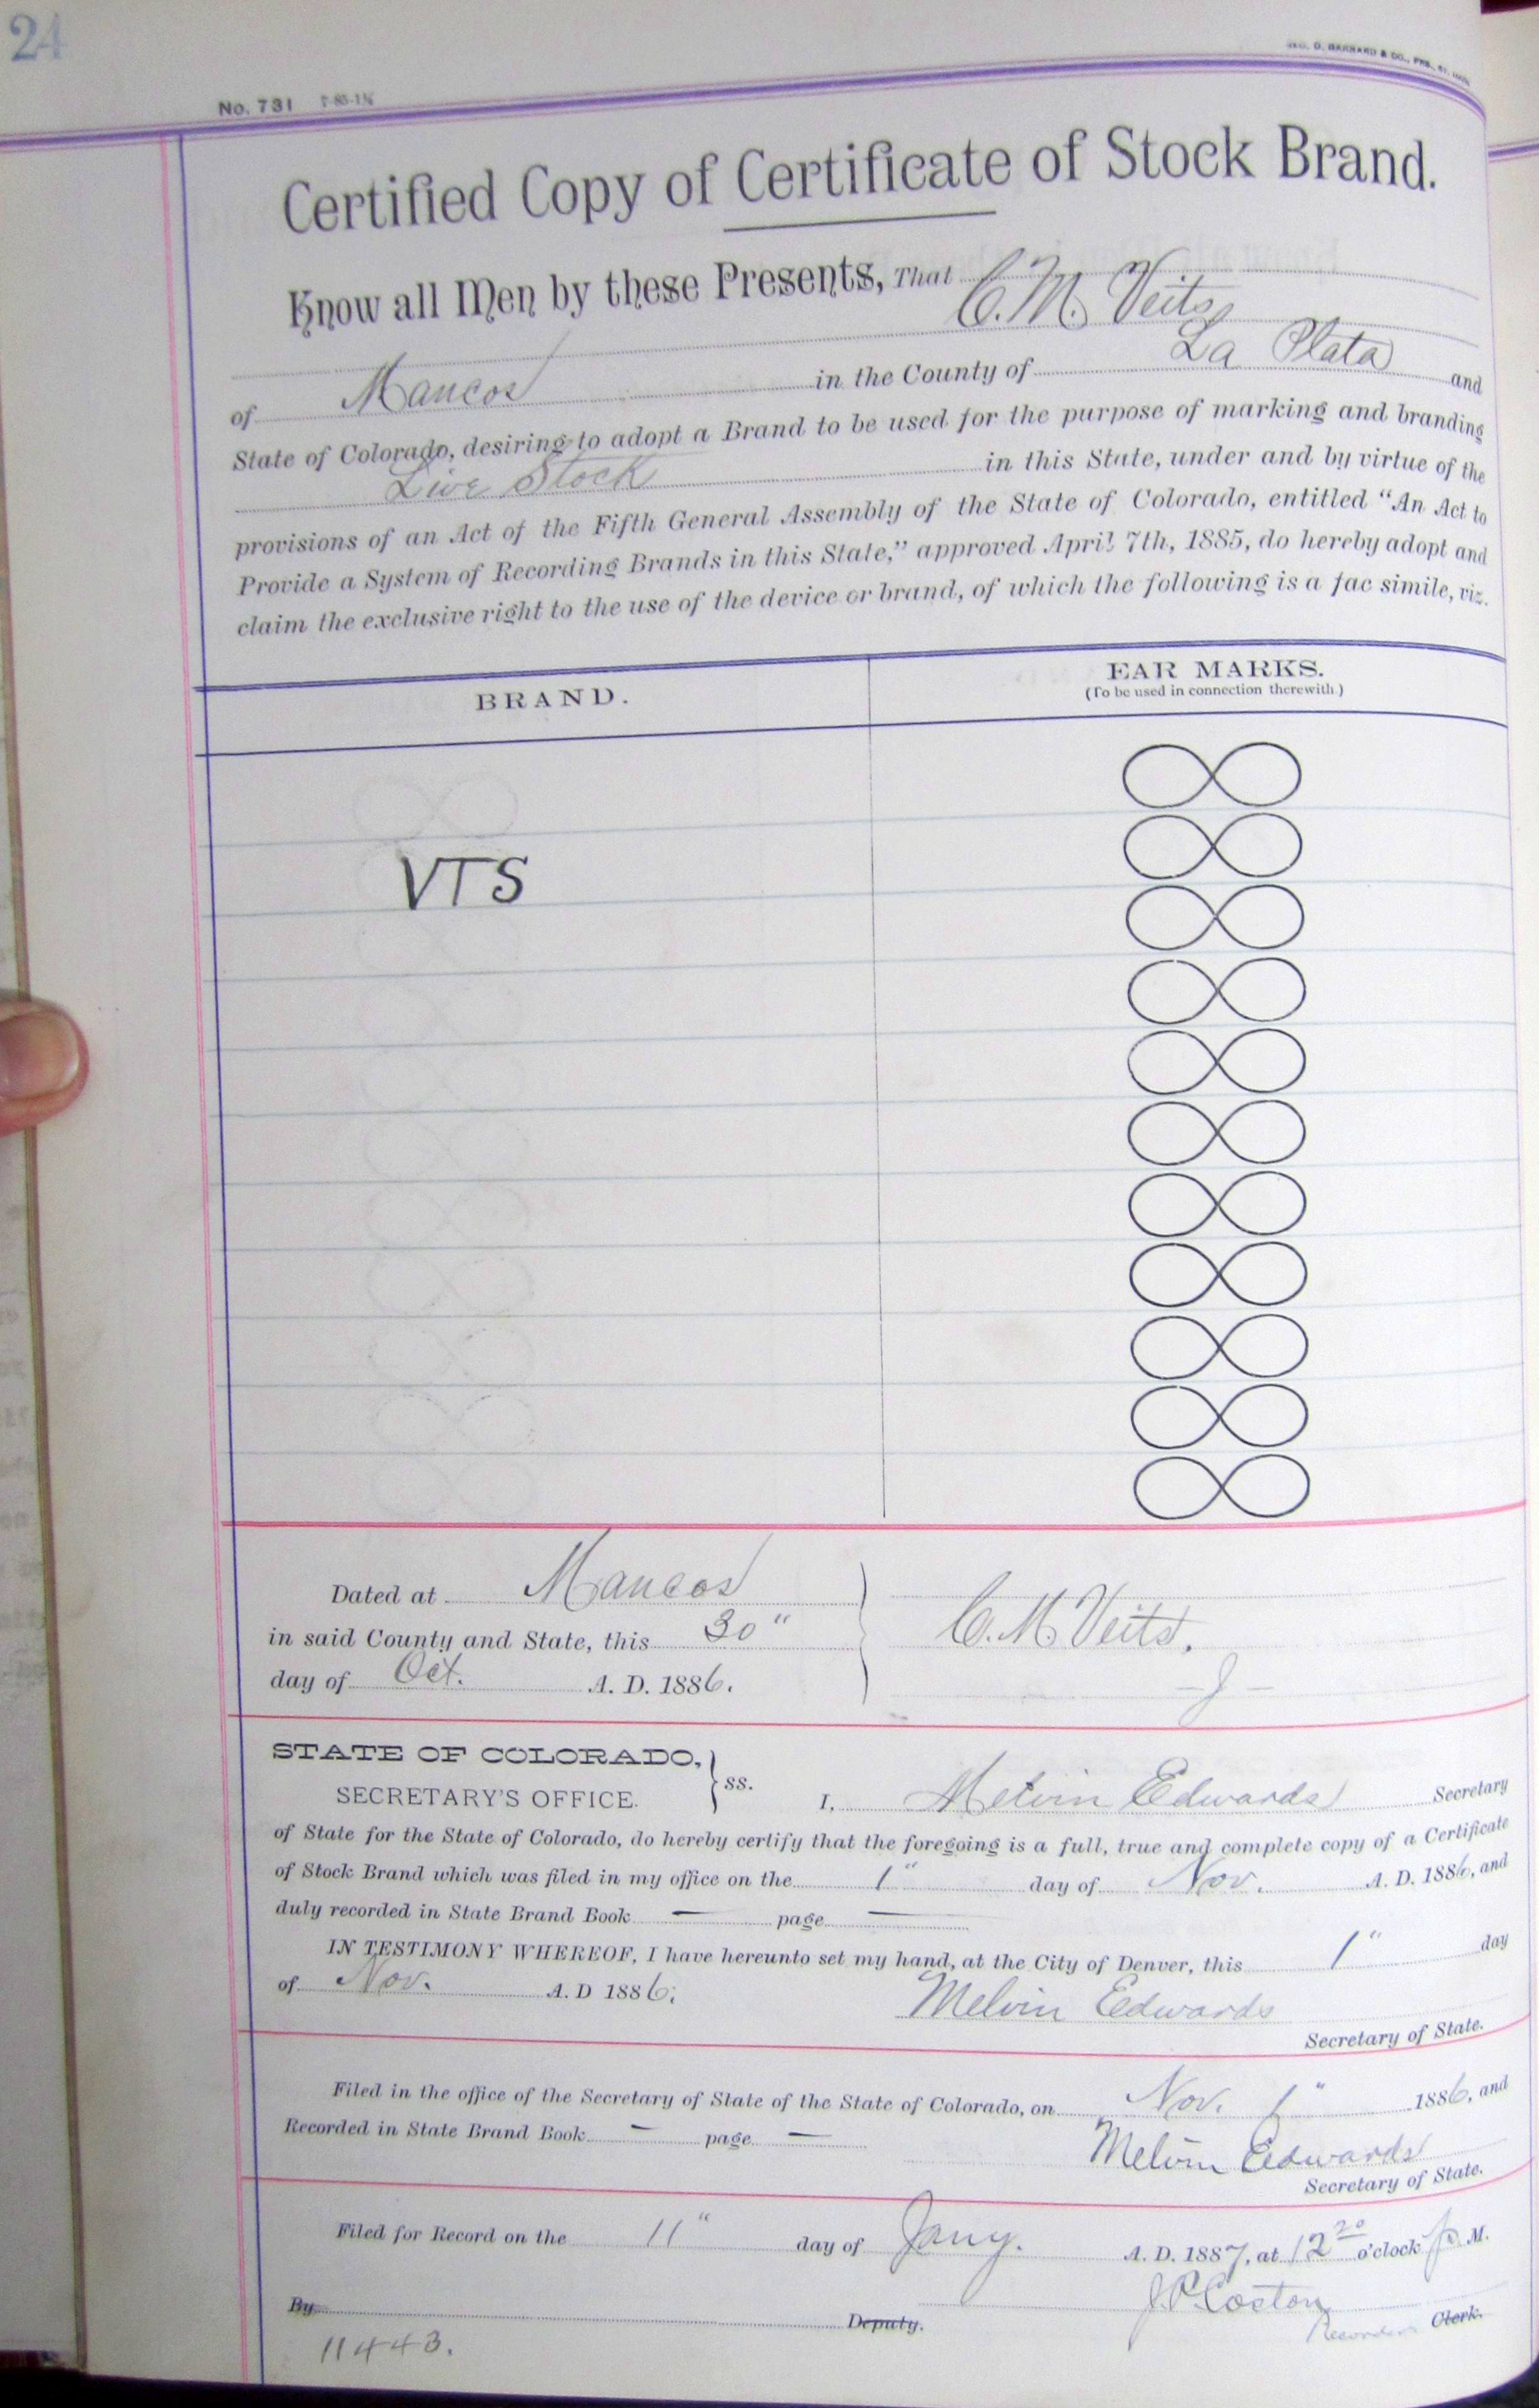 24
No. 731 7-85-1½
GEO. D. BARNARD & CO., PRS., ST. LOUIS
Certified Copy of Certificate of Stock Brand.
Know all Men by these Presents, That C. M. Veits
of Mancos in the County of La Plata and
State of Colorado, desiring to adopt a Brand to be used for the purpose of marking and branding
Live Stock in this State, under and by virtue of the
provisions of an Act of the Fifth General Assembly of the State of Colorado, entitled "An Act to
Provide a System of Recording Brands in this State," approved April 7th, 1885, do hereby adopt and
claim the exclusive right to the use of the device or brand, of which the following is a fac simile, viz.
BRAND.
EAR MARKS.
(To be used in connection therewith.)
VTS
Dated at Mancos
in said County and State, this 30"
day of Oct. A. D. 1886.
C. M. Veits.
STATE OF COLORADO,
SECRETARY'S OFFICE.
ss.
I, Melvin Edwards Secretary
of State for the State of Colorado, do hereby certify that the foregoing is a full, true and complete copy of a Certificate
of Stock Brand which was filed in my office on the 1" day of Nov. A. D. 1886, and
duly recorded in State Brand Book — page —
IN TESTIMONY WHEREOF, I have hereunto set my hand, at the City of Denver, this 1" day
of Nov. A. D 1886.
Melvin Edwards
Secretary of State.
Filed in the office of the Secretary of State of the State of Colorado, on Nov. 1" 1886, and
Recorded in State Brand Book — page —
Melvin Edwards
Secretary of State.
Filed for Record on the 11" day of Jany. A. D. 1887, at 12 20 o'clock p. M.
J P Coston
By Deputy. Recorder Clerk.
11443.